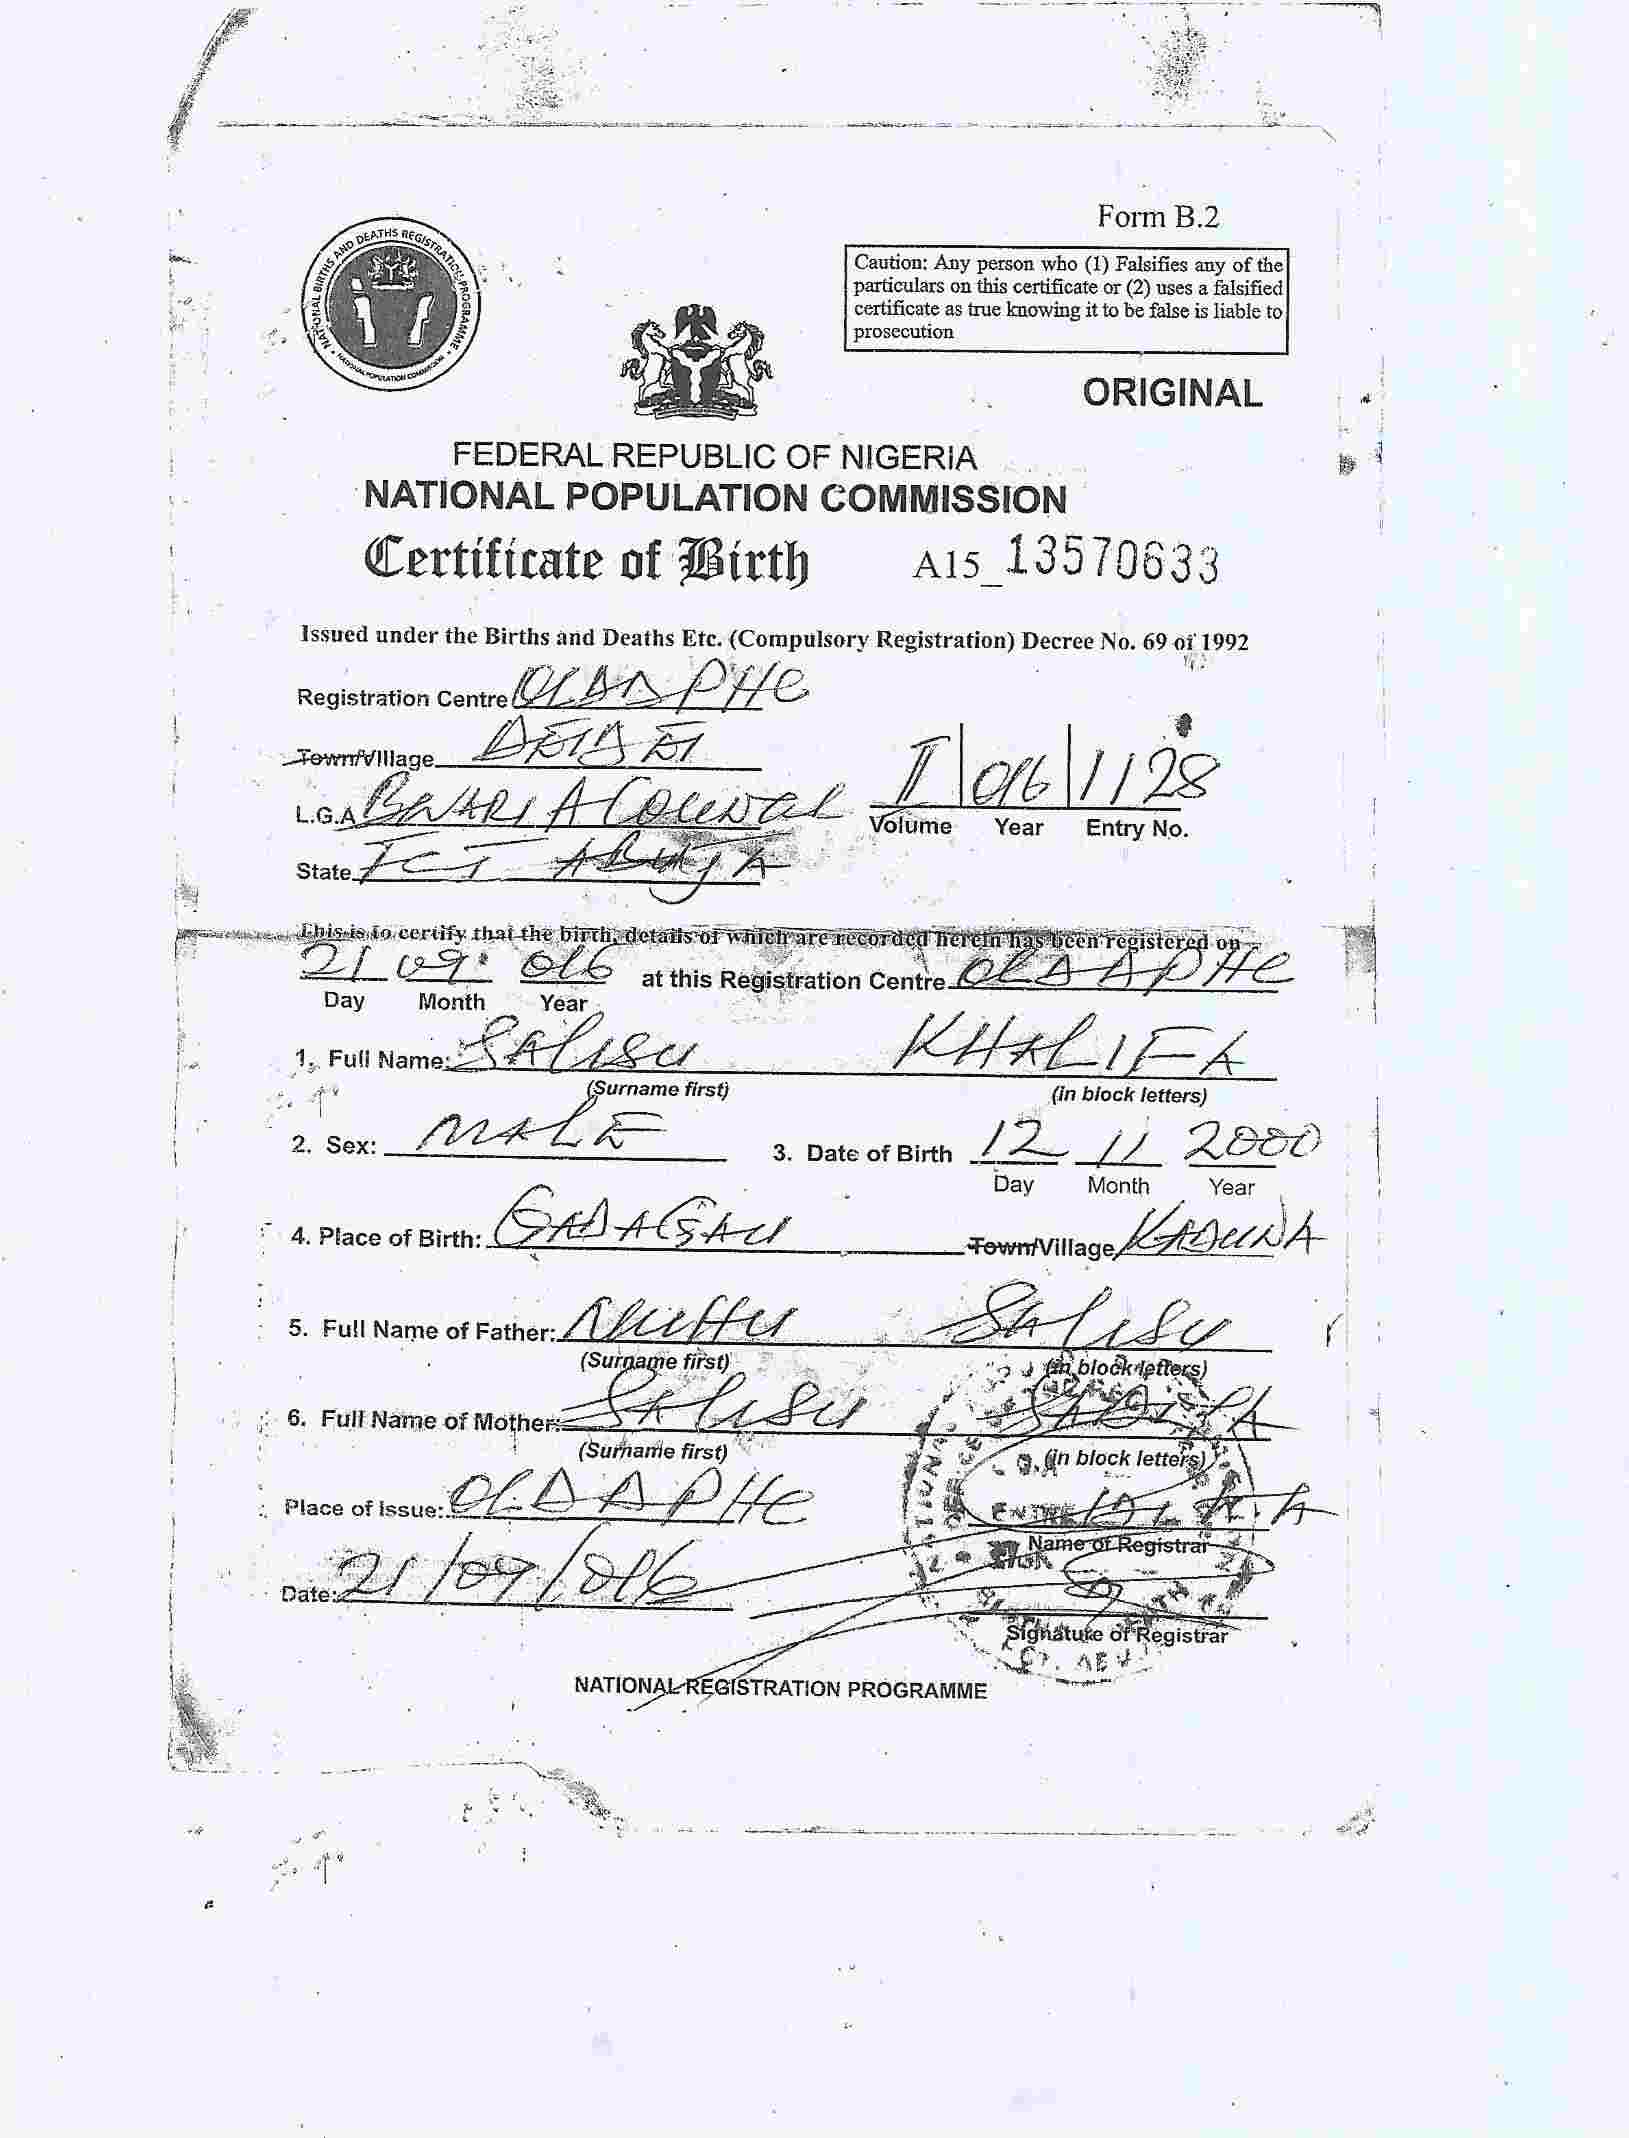 NATIONAL BIRTHS AND DEATHS REGISTRATION PROGRAMME
NATIONAL POPULATION COMMISSION
Form B.2
Caution: Any person who (1) Falsifies any of the
particulars on this certificate or (2) uses a falsified
certificate as true knowing it to be false is liable to
prosecution
ORIGINAL
FEDERAL REPUBLIC OF NIGERIA
NATIONAL POPULATION COMMISSION
Certificate of Birth A15_13570633
Issued under the Births and Deaths Etc. (Compulsory Registration) Decree No. 69 of 1992
Registration Centre OLD A PHC
Town/Village DEIDEI
L.G.A BWARI A COUNCIL
II 016 1128
Volume Year Entry No.
State FCT ABUJA
This is to certify that the birth, details of which are recorded herein has been registered on
21 09 016 at this Registration Centre OLD A PHC
Day Month Year
1. Full Name: SALISU KHALIFA
(Surname first) (in block letters)
2. Sex: MALE 3. Date of Birth 12 11 2000
Day Month Year
4. Place of Birth: GADAGAU Town/Village KADUNA
5. Full Name of Father: NUHU SALISU
(Surname first) (in block letters)
6. Full Name of Mother: SALISU
(Surname first) (in block letters)
Place of Issue: OLD A PHC
Name of Registrar
Date: 21/09/016
Signature of Registrar
NATIONAL REGISTRATION PROGRAMME